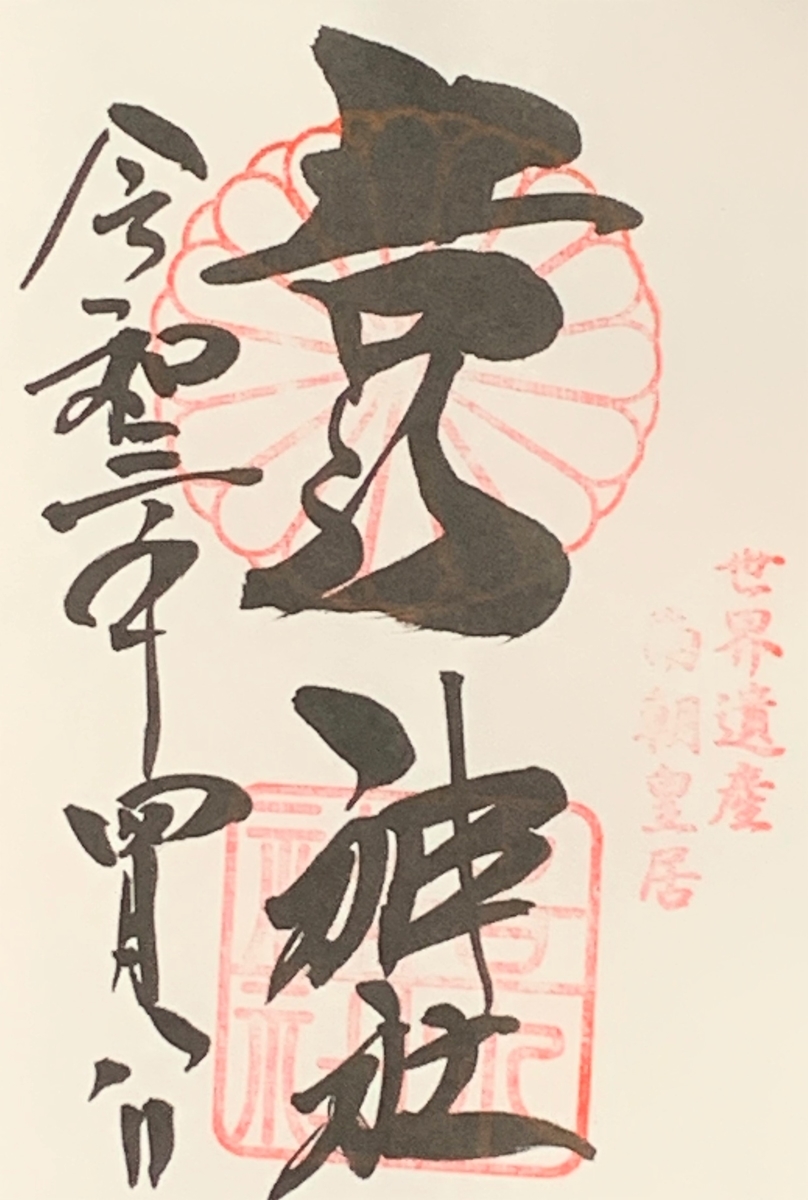 世界遺産
南朝皇居
吉水神社
吉水
神社
令和三年四月八日